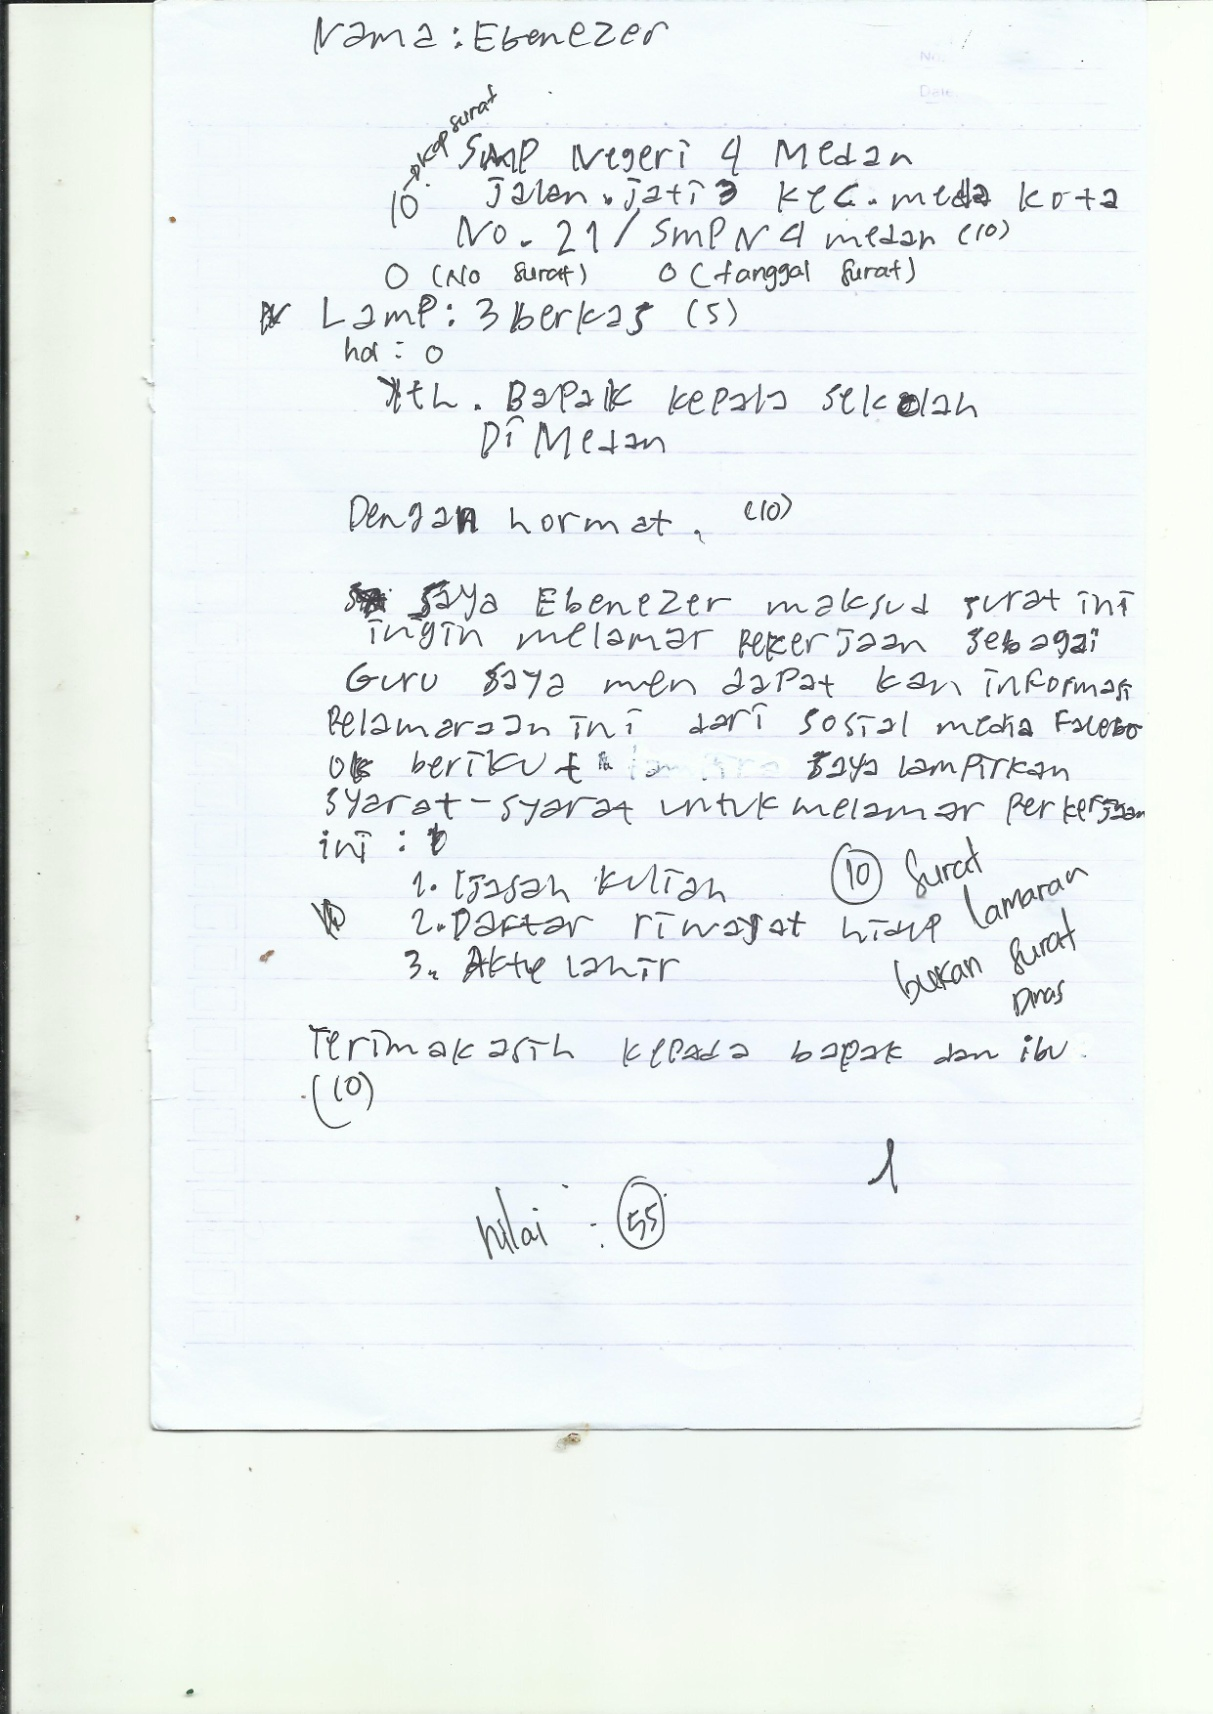 Nama : Ebenezer
No.
Date
10 → kop surat
SMP Negeri 4 Medan
Jalan . jati 3 kec. meda kota
No. 21 / SMP N 4 medan (10)
0 (No surat) 0 (tanggal surat)
Lamp : 3 berkas (5)
hal : 0
Yth . Bapak kepala sekolah
Di Medan
Dengan hormat . (10)
saya Ebenezer maksud surat ini
ingin melamar Pekerjaan sebagai
Guru saya men dapat kan informasi
Pelamaraan ini dari sosial media Facebo
ok berikut saya lampirkan
syarat-syarat untuk melamar Perkerjaan
ini :
1. Ijasah kuliah
2. Daftar riwayat hidup
3. Akte lahir
(10) surat
lamaran
bukan surat
Dinas
Terimakasih kepada bapak dan ibu.
(10)
nilai : 55